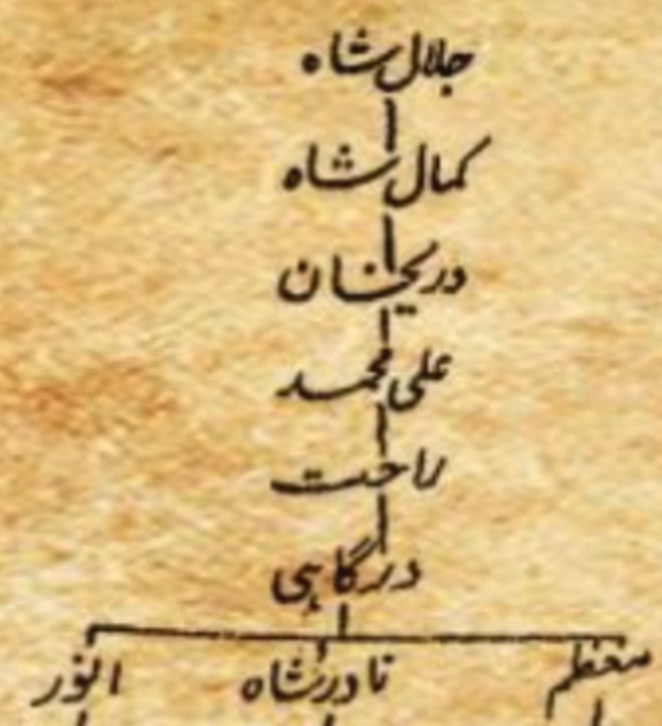 جلال شاه
کمال شاه
دریخان
علی محمد
راحت
درگاہی
معظم نادر شاه انور